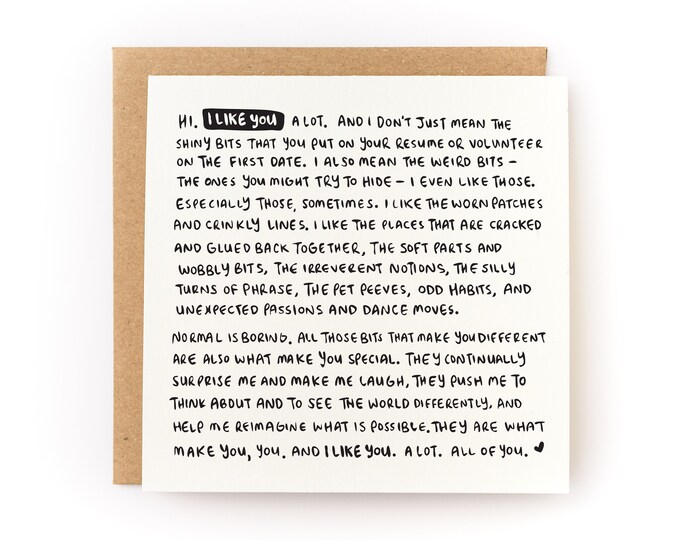 HI. I LIKE YOU A LOT. AND I DON'T JUST MEAN THE
SHINY BITS THAT YOU PUT ON YOUR RESUME OR VOLUNTEER
ON THE FIRST DATE. I ALSO MEAN THE WEIRD BITS –
THE ONES YOU MIGHT TRY TO HIDE – I EVEN LIKE THOSE.
ESPECIALLY THOSE, SOMETIMES. I LIKE THE WORN PATCHES
AND CRINKLY LINES. I LIKE THE PLACES THAT ARE CRACKED
AND GLUED BACK TOGETHER, THE SOFT PARTS AND
WOBBLY BITS, THE IRREVERENT NOTIONS, THE SILLY
TURNS OF PHRASE, THE PET PEEVES, ODD HABITS, AND
UNEXPECTED PASSIONS AND DANCE MOVES.
NORMAL IS BORING. ALL THOSE BITS THAT MAKE YOU DIFFERENT
ARE ALSO WHAT MAKE YOU SPECIAL. THEY CONTINUALLY
SURPRISE ME AND MAKE ME LAUGH, THEY PUSH ME TO
THINK ABOUT AND TO SEE THE WORLD DIFFERENTLY, AND
HELP ME REIMAGINE WHAT IS POSSIBLE. THEY ARE WHAT
MAKE YOU, YOU. AND I LIKE YOU. A LOT. ALL OF YOU. ♥